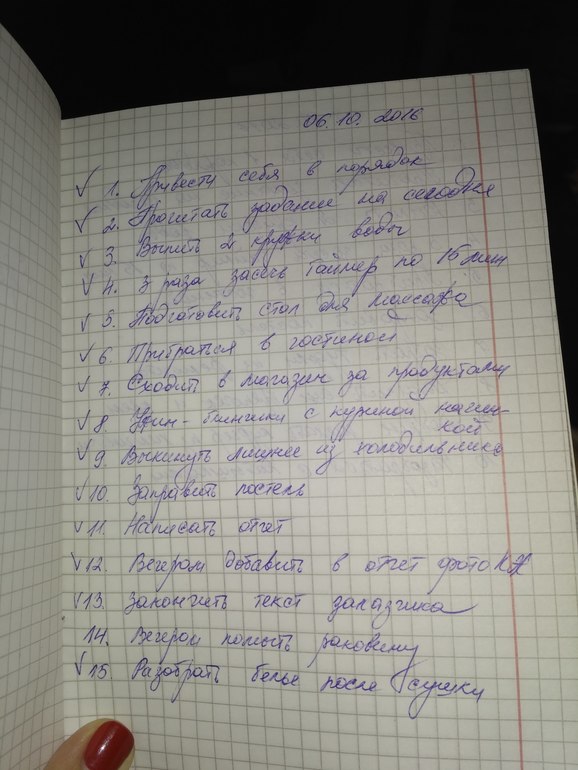 06.10.2016
✓ 1. Привести себя в порядок
✓ 2. Прочитать задание на сегодня
✓ 3. Выпить 2 кружки воды
✓ 4. 3 раза засечь таймер по 15 мин
✓ 5. Подготовить стол для массажа
✓ 6. Прибраться в гостиной
✓ 7. Сходить в магазин за продуктами
✓ 8. Ужин - блинчики с куриной начин-
кой
✓ 9. Выкинуть лишнее из холодильника
✓ 10. Заправить постель
✓ 11. Написать отчет
✓ 12. Вечером добавить в отчет фото КЯ
✓ 13. Закончить текст заказчика
14. Вечером помыть раковину
✓ 15. Разобрать белье после сушки